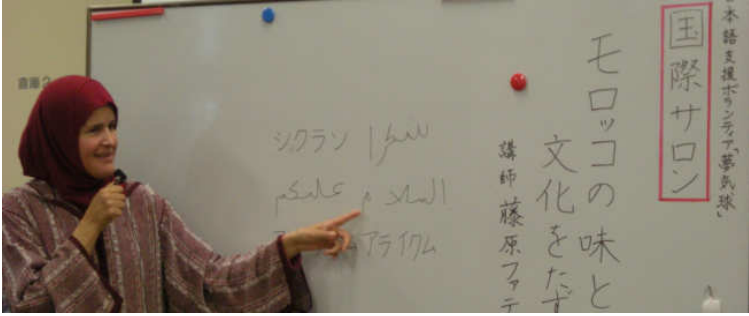 本語支援ボランティア「夢気球」
国際サロン
モロッコの味と
文化をたず
講師 藤原ファテ
シクラン شكرا
السلام عليكم
ムアライクム